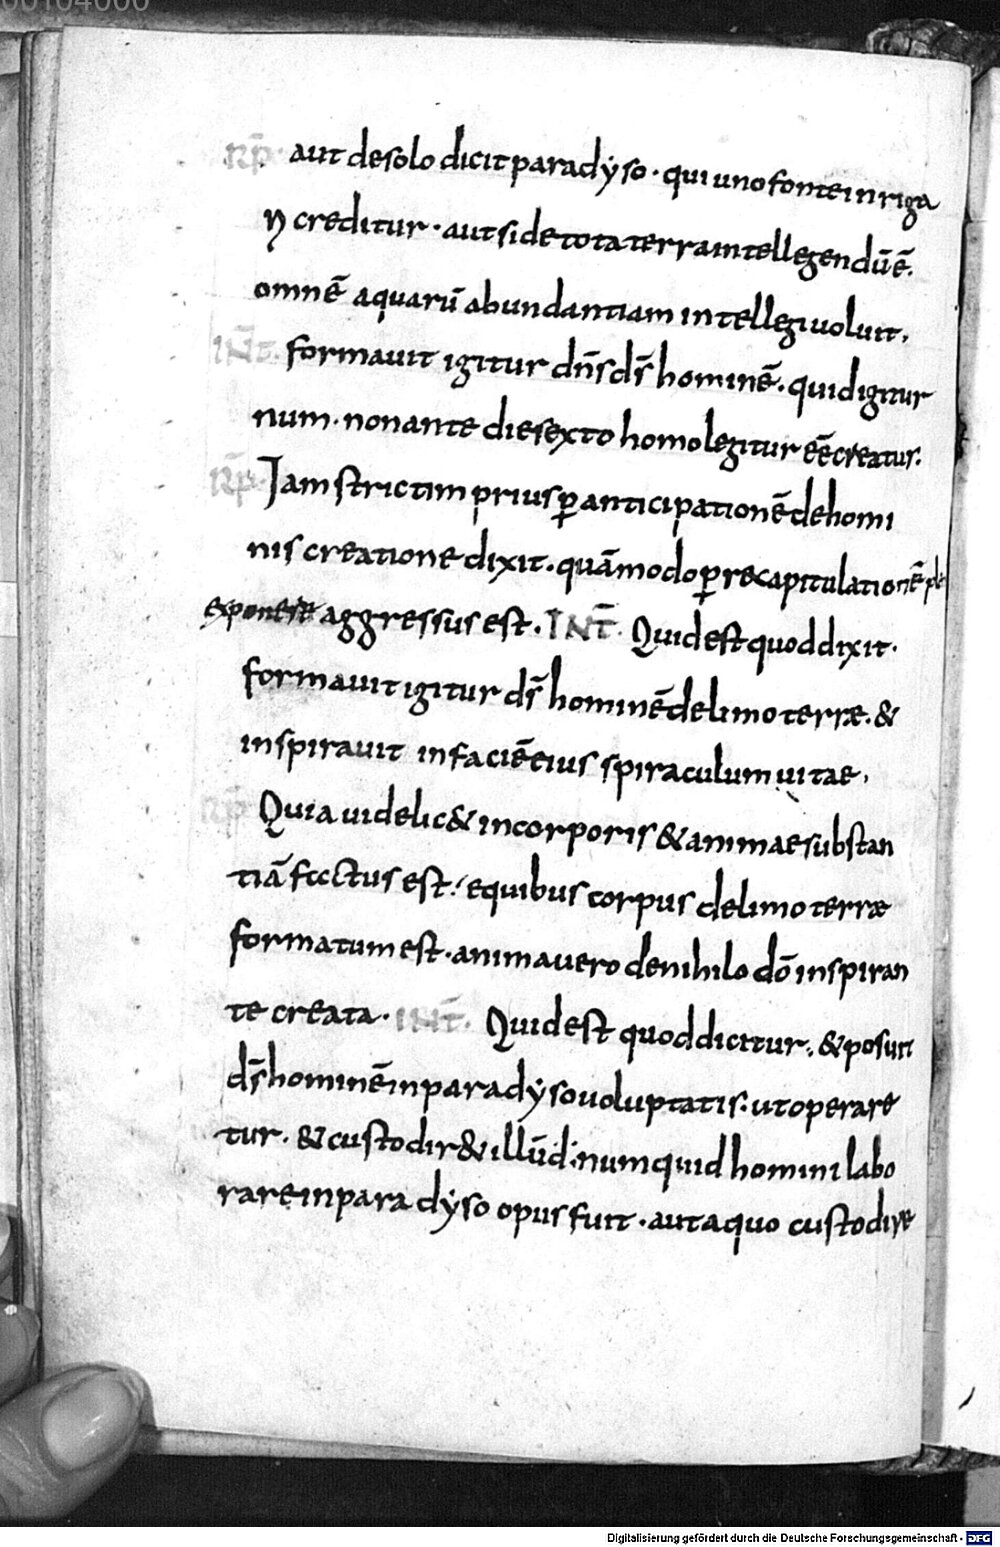 00104006
R̄P̄. aut de solo dicit paradẏso · qui uno fonte inriga
ri creditur · aut si de tota terra intellegendū ē̄.
omnē aquarū abundantiam intellegi uoluit.
INT̄. formauit igitur dn̄s ds̄ hominē. quid igitur
num · non ante die sexto homo legitur eē creatus.
R̄P̄. Iam strictim prius ꝑ anticipationē de homi
nis creatione dixit. quā modo ꝑ recapitulationē ple
exponere aggressus est. INT̄. Quid est quod dixit.
formauit igitur ds̄ hominē de limo terræ. &
inspirauit in faciē eius spiraculum uitae.
R̄P̄ Quia uidelic& in corporis & animae substan
tiā factus est. e quibus corpus de limo terræ
formatum est. anima uero de nihilo dō inspiran
te creata. INT̄. Quid est quod dicitur. & posuit
ds̄ hominē in paradẏso uoluptatis. ut operare
tur. & custodir& illūd. numquid homini labo
rare in paradẏso opus fuit. aut a quo custodire
Digitalisierung gefördert durch die Deutsche Forschungsgemeinschaft - DFG